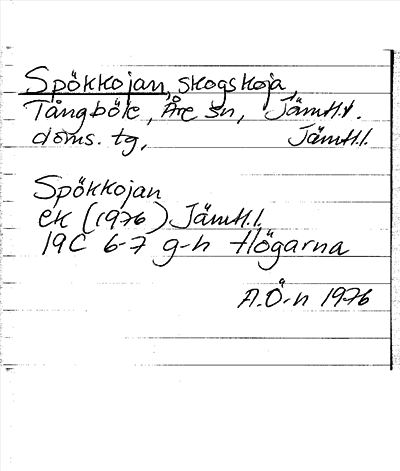 Spökkojan, skogskoja,
Tångböle, Åre sn, Jämtl.v.
doms. tg, Jämtl.l.
Spökkojan
ek (1976) Jämtl.l.
19C 6-7 g-h Högarna
A.Ö-n 1976